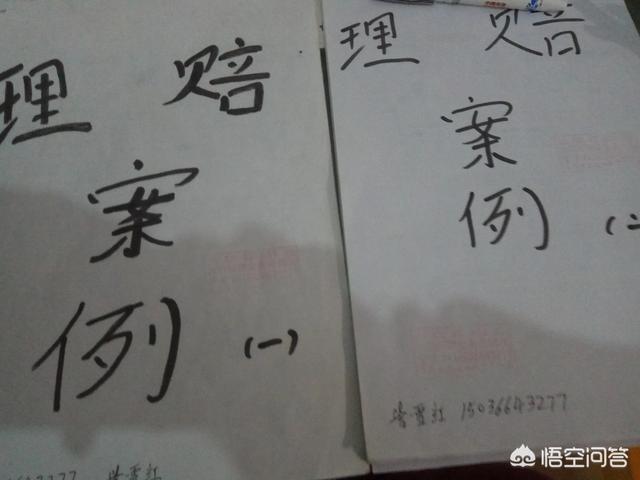 理赔
案
例
(一)
理赔
案
例
(二
15036643277
悟空问答